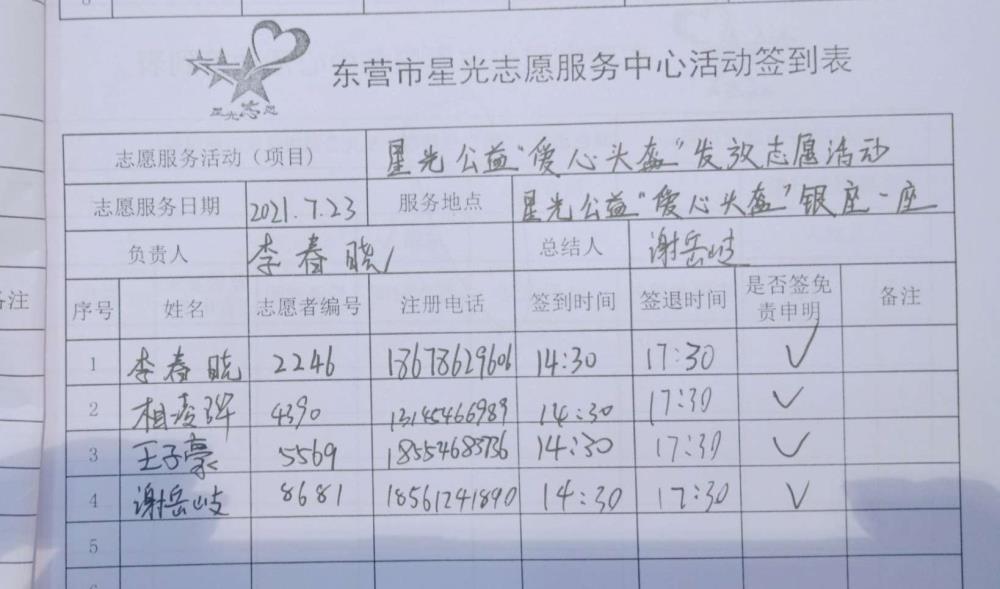 星光志愿
东营市星光志愿服务中心活动签到表
志愿服务活动（项目） 星光公益“爱心头盔”发放志愿活动
志愿服务日期 2021.7.23 服务地点 星光公益“爱心头盔”银座一座
负责人 李春晓 总结人 谢岳岐
序号 姓名 志愿者编号 注册电话 签到时间 签退时间 是否签免责申明 备注
1 李春晓 2246 18678629606 14:30 17:30 ✓
2 相凌 4390 13145466989 14:30 17:30 ✓
3 王子豪 5569 18554683736 14:30 17:30 ✓
4 谢岳岐 8681 18561241890 14:30 17:30 ✓
5
备注